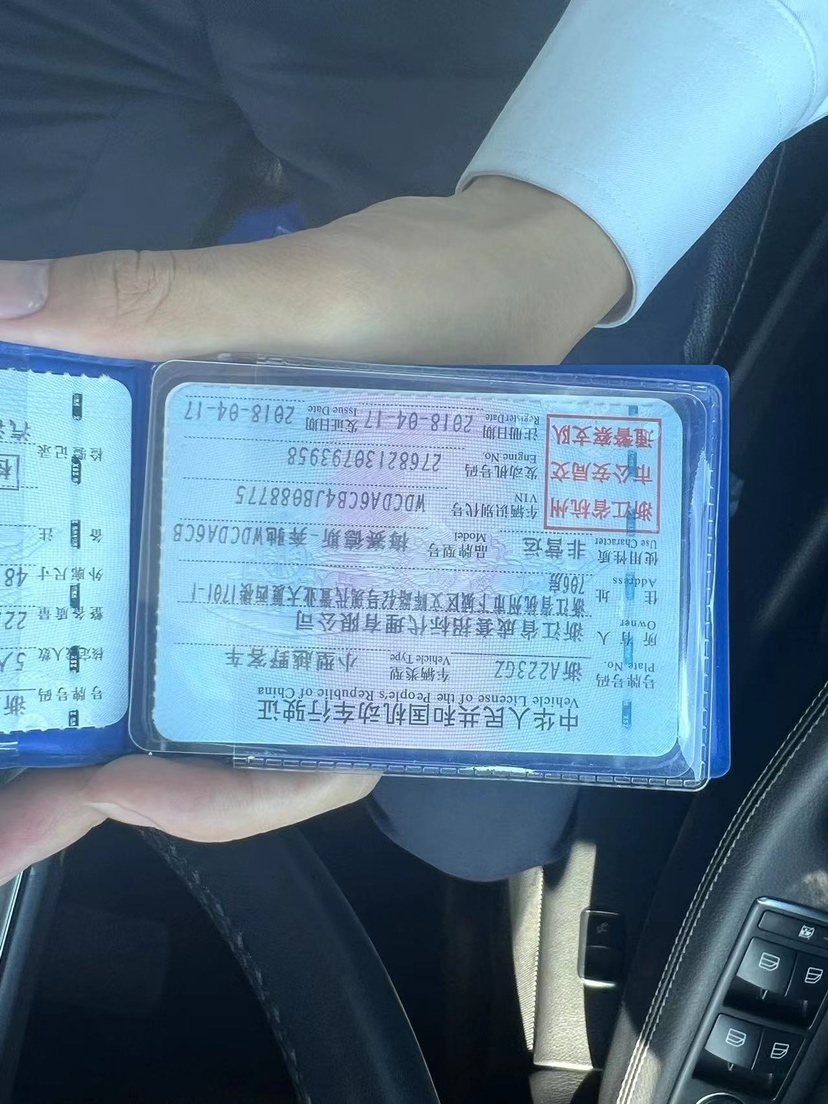 中华人民共和国机动车行驶证
Vehicle License of the People's Republic of China
号牌号码 Plate No. 浙A223GZ 车辆类型 Vehicle Type 小型越野客车
所有人 Owner 浙江省成套招标代理有限公司
住址 Address 浙江省杭州市下城区文晖路 号现代置业大厦西楼1701-1
706房
使用性质 Use Character 非营运 品牌型号 Model 梅赛德斯-奔驰WDCDA6CB
浙江省杭州
市公安局交
通警察支队
车辆识别代号 VIN WDCDA6CB4JB088775
发动机号码 Engine No. 27682130793958
注册日期 Register Date 2018-04-17 发证日期 Issue Date 2018-04-17
号牌号码 浙
核定人数 5人
整备质量 22
外廓尺寸 48
备注
检验记录